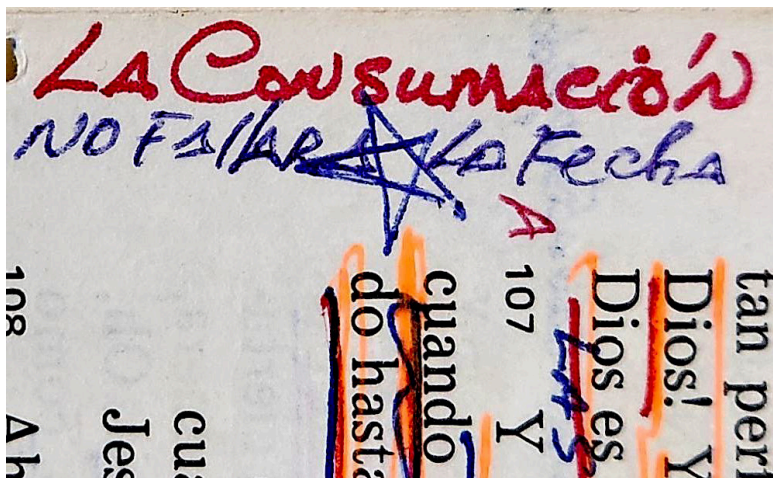 LA CONSUMACIÓN
NO FALLARA LA FECHA
A
tan per
Dios! Y
Dios es
LAS
107 Y
cuando
do hasta
cua
Jes
108 Ah